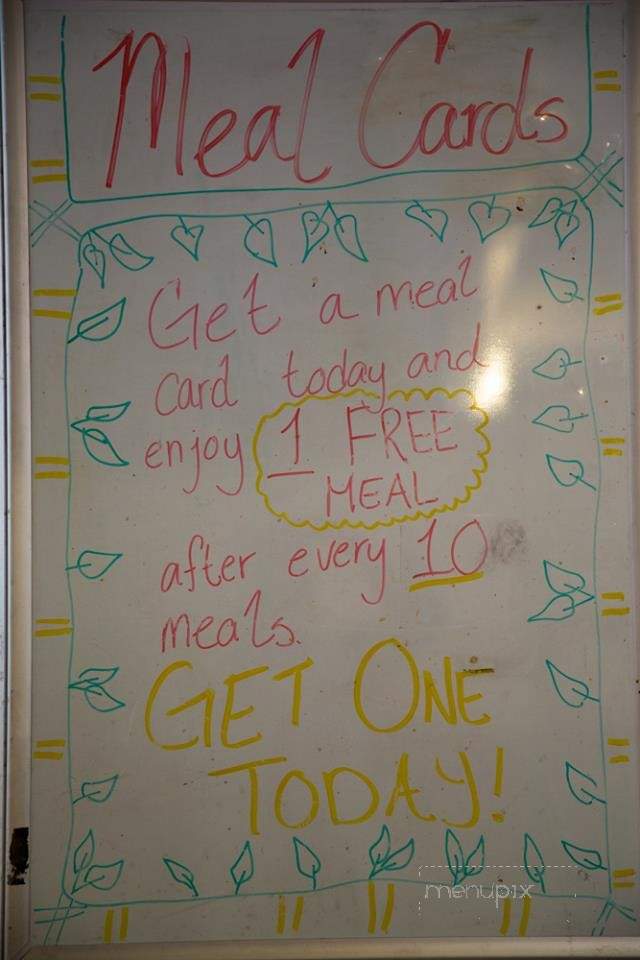 Meal Cards
Get a meal
card today and
enjoy 1 FREE
MEAL
after every 10
meals.
GET ONE
TODAY!
menupix